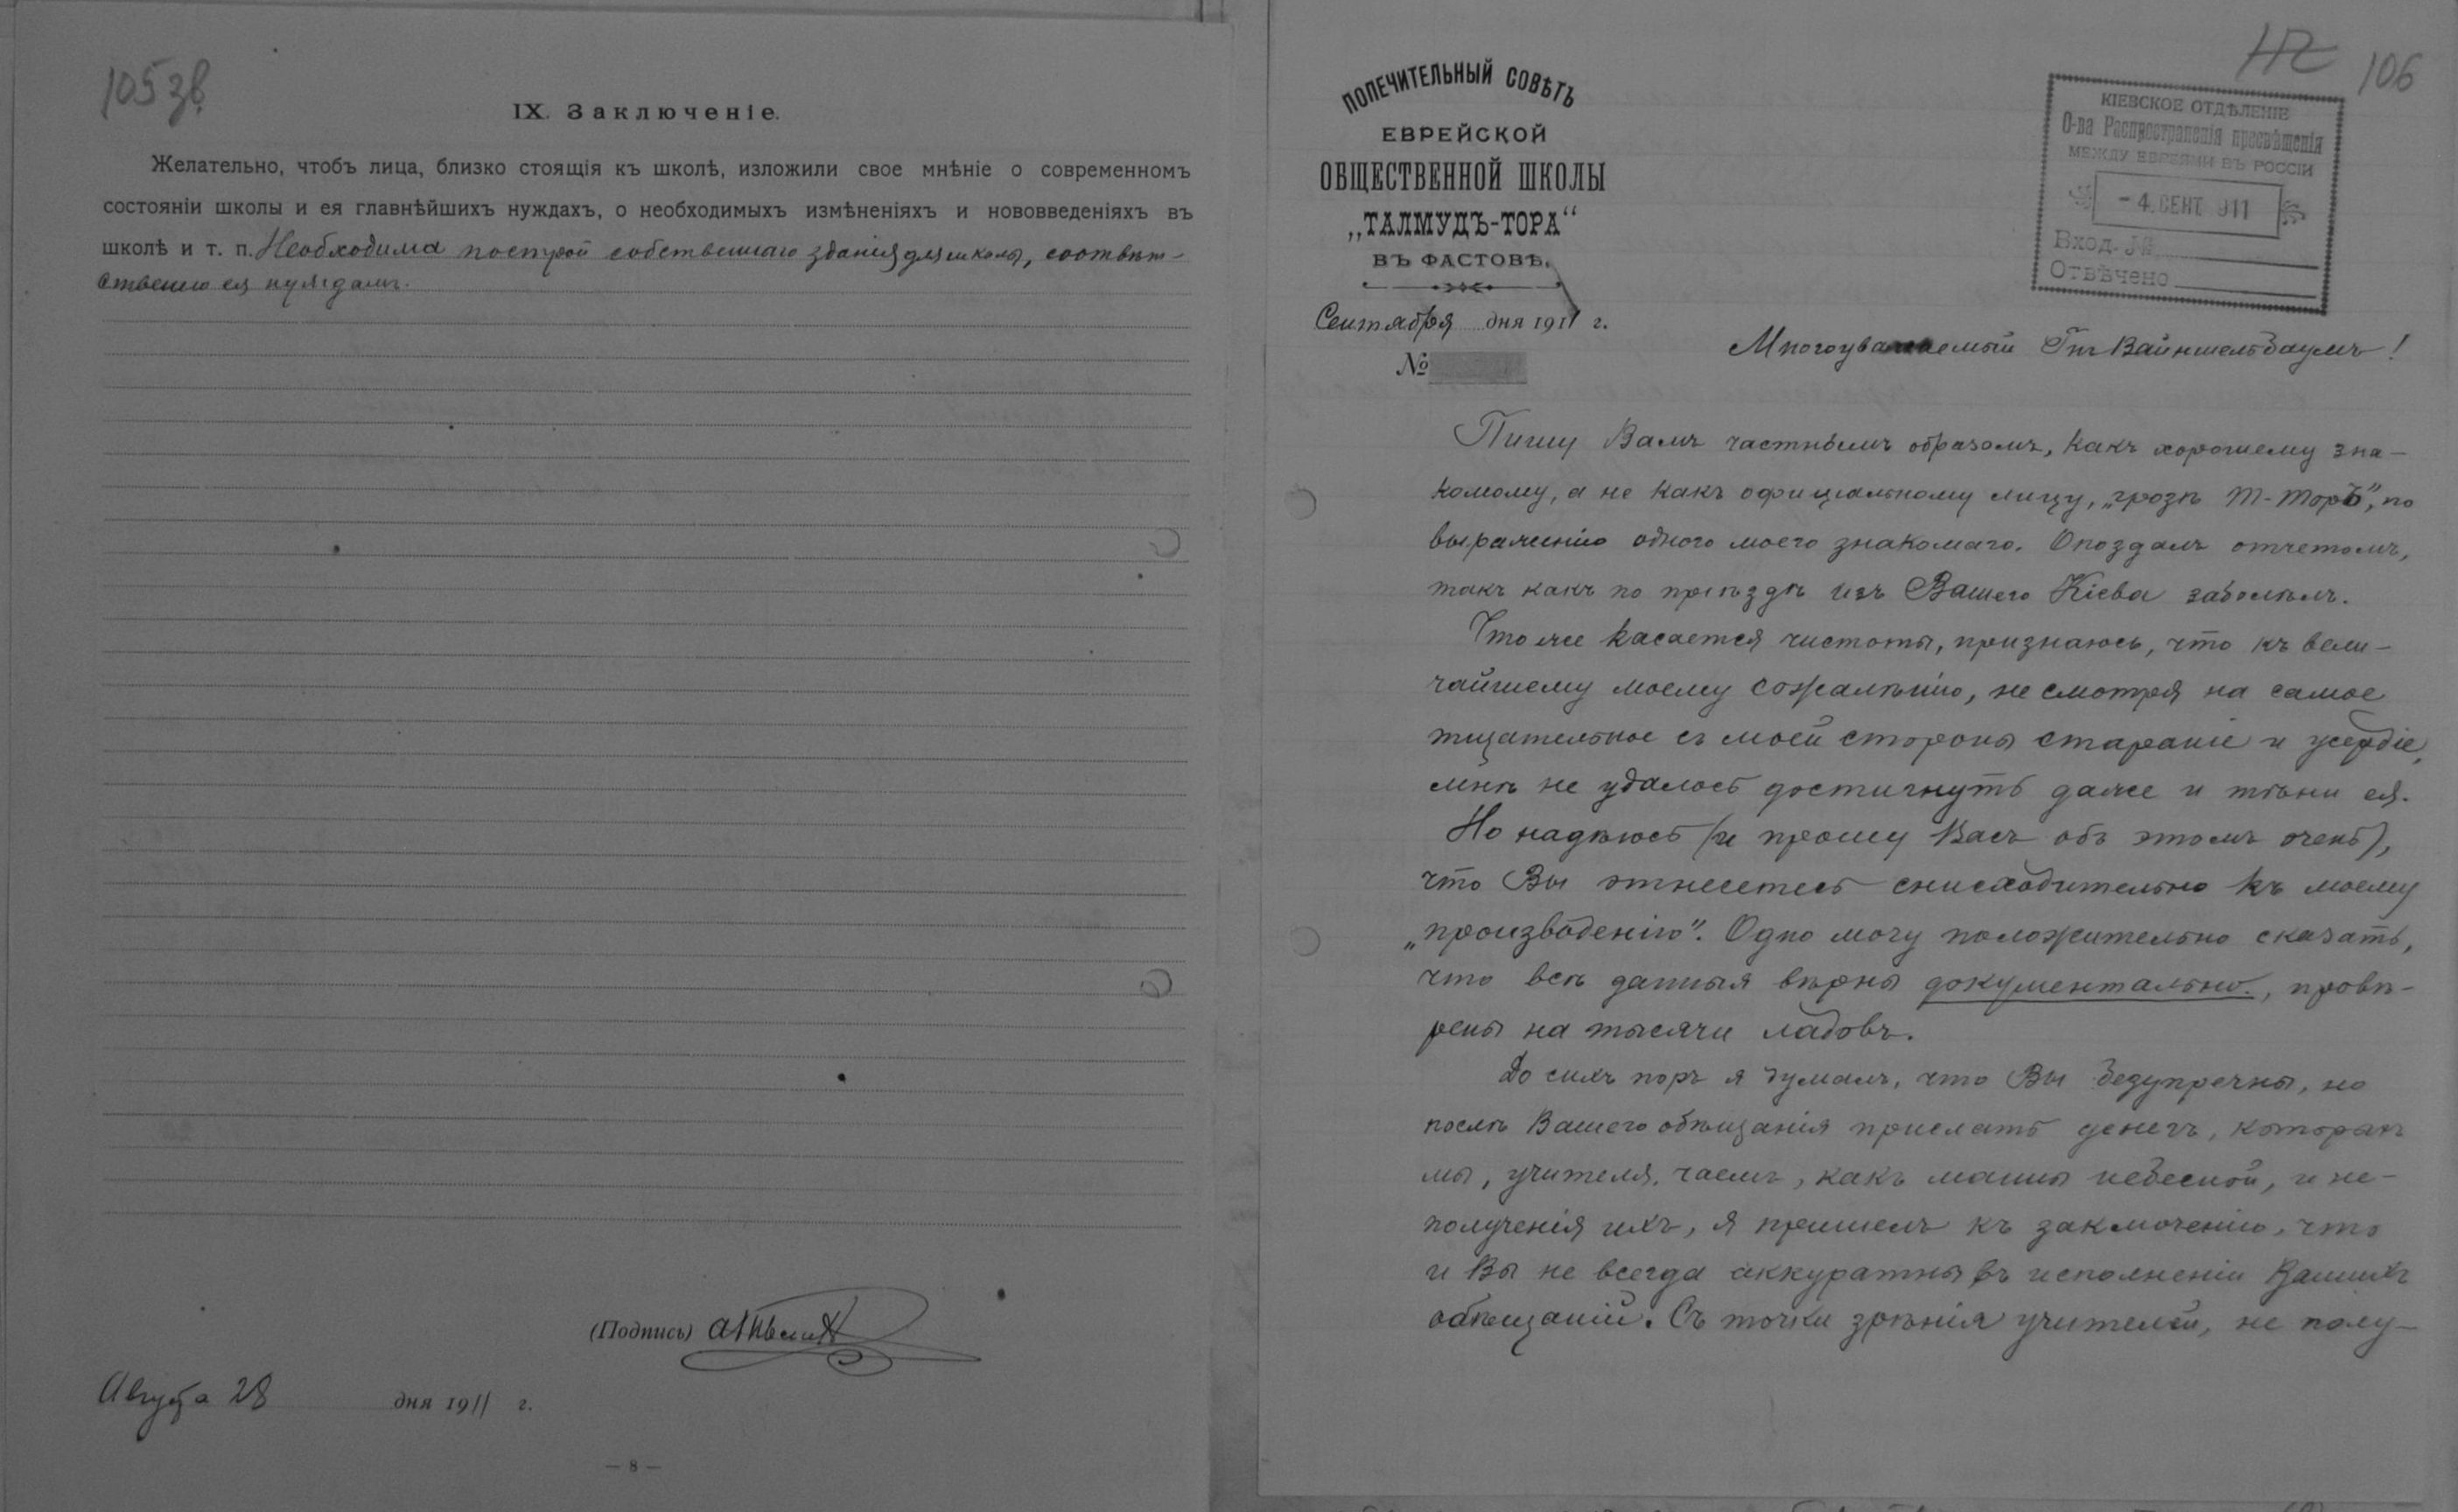 105 зв.
IX. Заключеніе.
Желательно, чтобъ лица, близко стоящія къ школѣ, изложили свое мнѣніе о современномъ
состояніи школы и ея главнѣйшихъ нуждахъ, о необходимыхъ измѣненіяхъ и нововведеніяхъ въ
школѣ и т. п. Необходима построй собственнаго зданія для школы, соотвѣт-
ственно ея нуждамъ.
(Подпись)
Августа 28 дня 1911 г.
— 8 —
106
ПОПЕЧИТЕЛЬНЫЙ СОВѢТЪ
ЕВРЕЙСКОЙ
ОБЩЕСТВЕННОЙ ШКОЛЫ
„ТАЛМУДЪ-ТОРА“
ВЪ ФАСТОВѢ.
Сентября дня 1911 г.
№
КІЕВСКОЕ ОТДѢЛЕНІЕ
О-ва Распространенія просвѣщенія
МЕЖДУ ЕВРЕЯМИ ВЪ РОССІИ
- 4. СЕНТ. 911
Вход. №
Отвѣчено
Многоуважаемый Гнъ Вайншельбаумъ!
Пишу Вамъ частнымъ образомъ, какъ хорошему зна-
комому, а не какъ официальному лицу, „грозѣ Т-Торъ“, по
выраженію одного моего знакомаго. Опоздалъ отчетомъ,
такъ какъ по пріѣздѣ изъ Вашего Кіева заболѣлъ.
Что же касается чистоты, признаюсь, что къ вели-
чайшему моему сожалѣнію, не смотря на самое
тщательное съ моей стороны стараніе и усердіе,
мнѣ не удалось достигнуть даже и тѣни ея.
Но надѣюсь (и прошу Васъ объ этомъ очень),
что Вы отнесетесь снисходительно къ моему
„произведенію“. Одно могу положительно сказать,
что всѣ данныя вѣрны документально, провѣ-
рены на тысячи ладовъ.
До сихъ поръ я думалъ, что Вы безупречны, но
послѣ Вашего обѣщанія прислать денегъ, которыхъ
мы, учителя, чаемъ, какъ манны небесной, и не-
полученія ихъ, я пришелъ къ заключенію, что
и Вы не всегда аккуратны въ исполненіи Вашихъ
обѣщаній. Съ точки зрѣнія учителей, не полу-